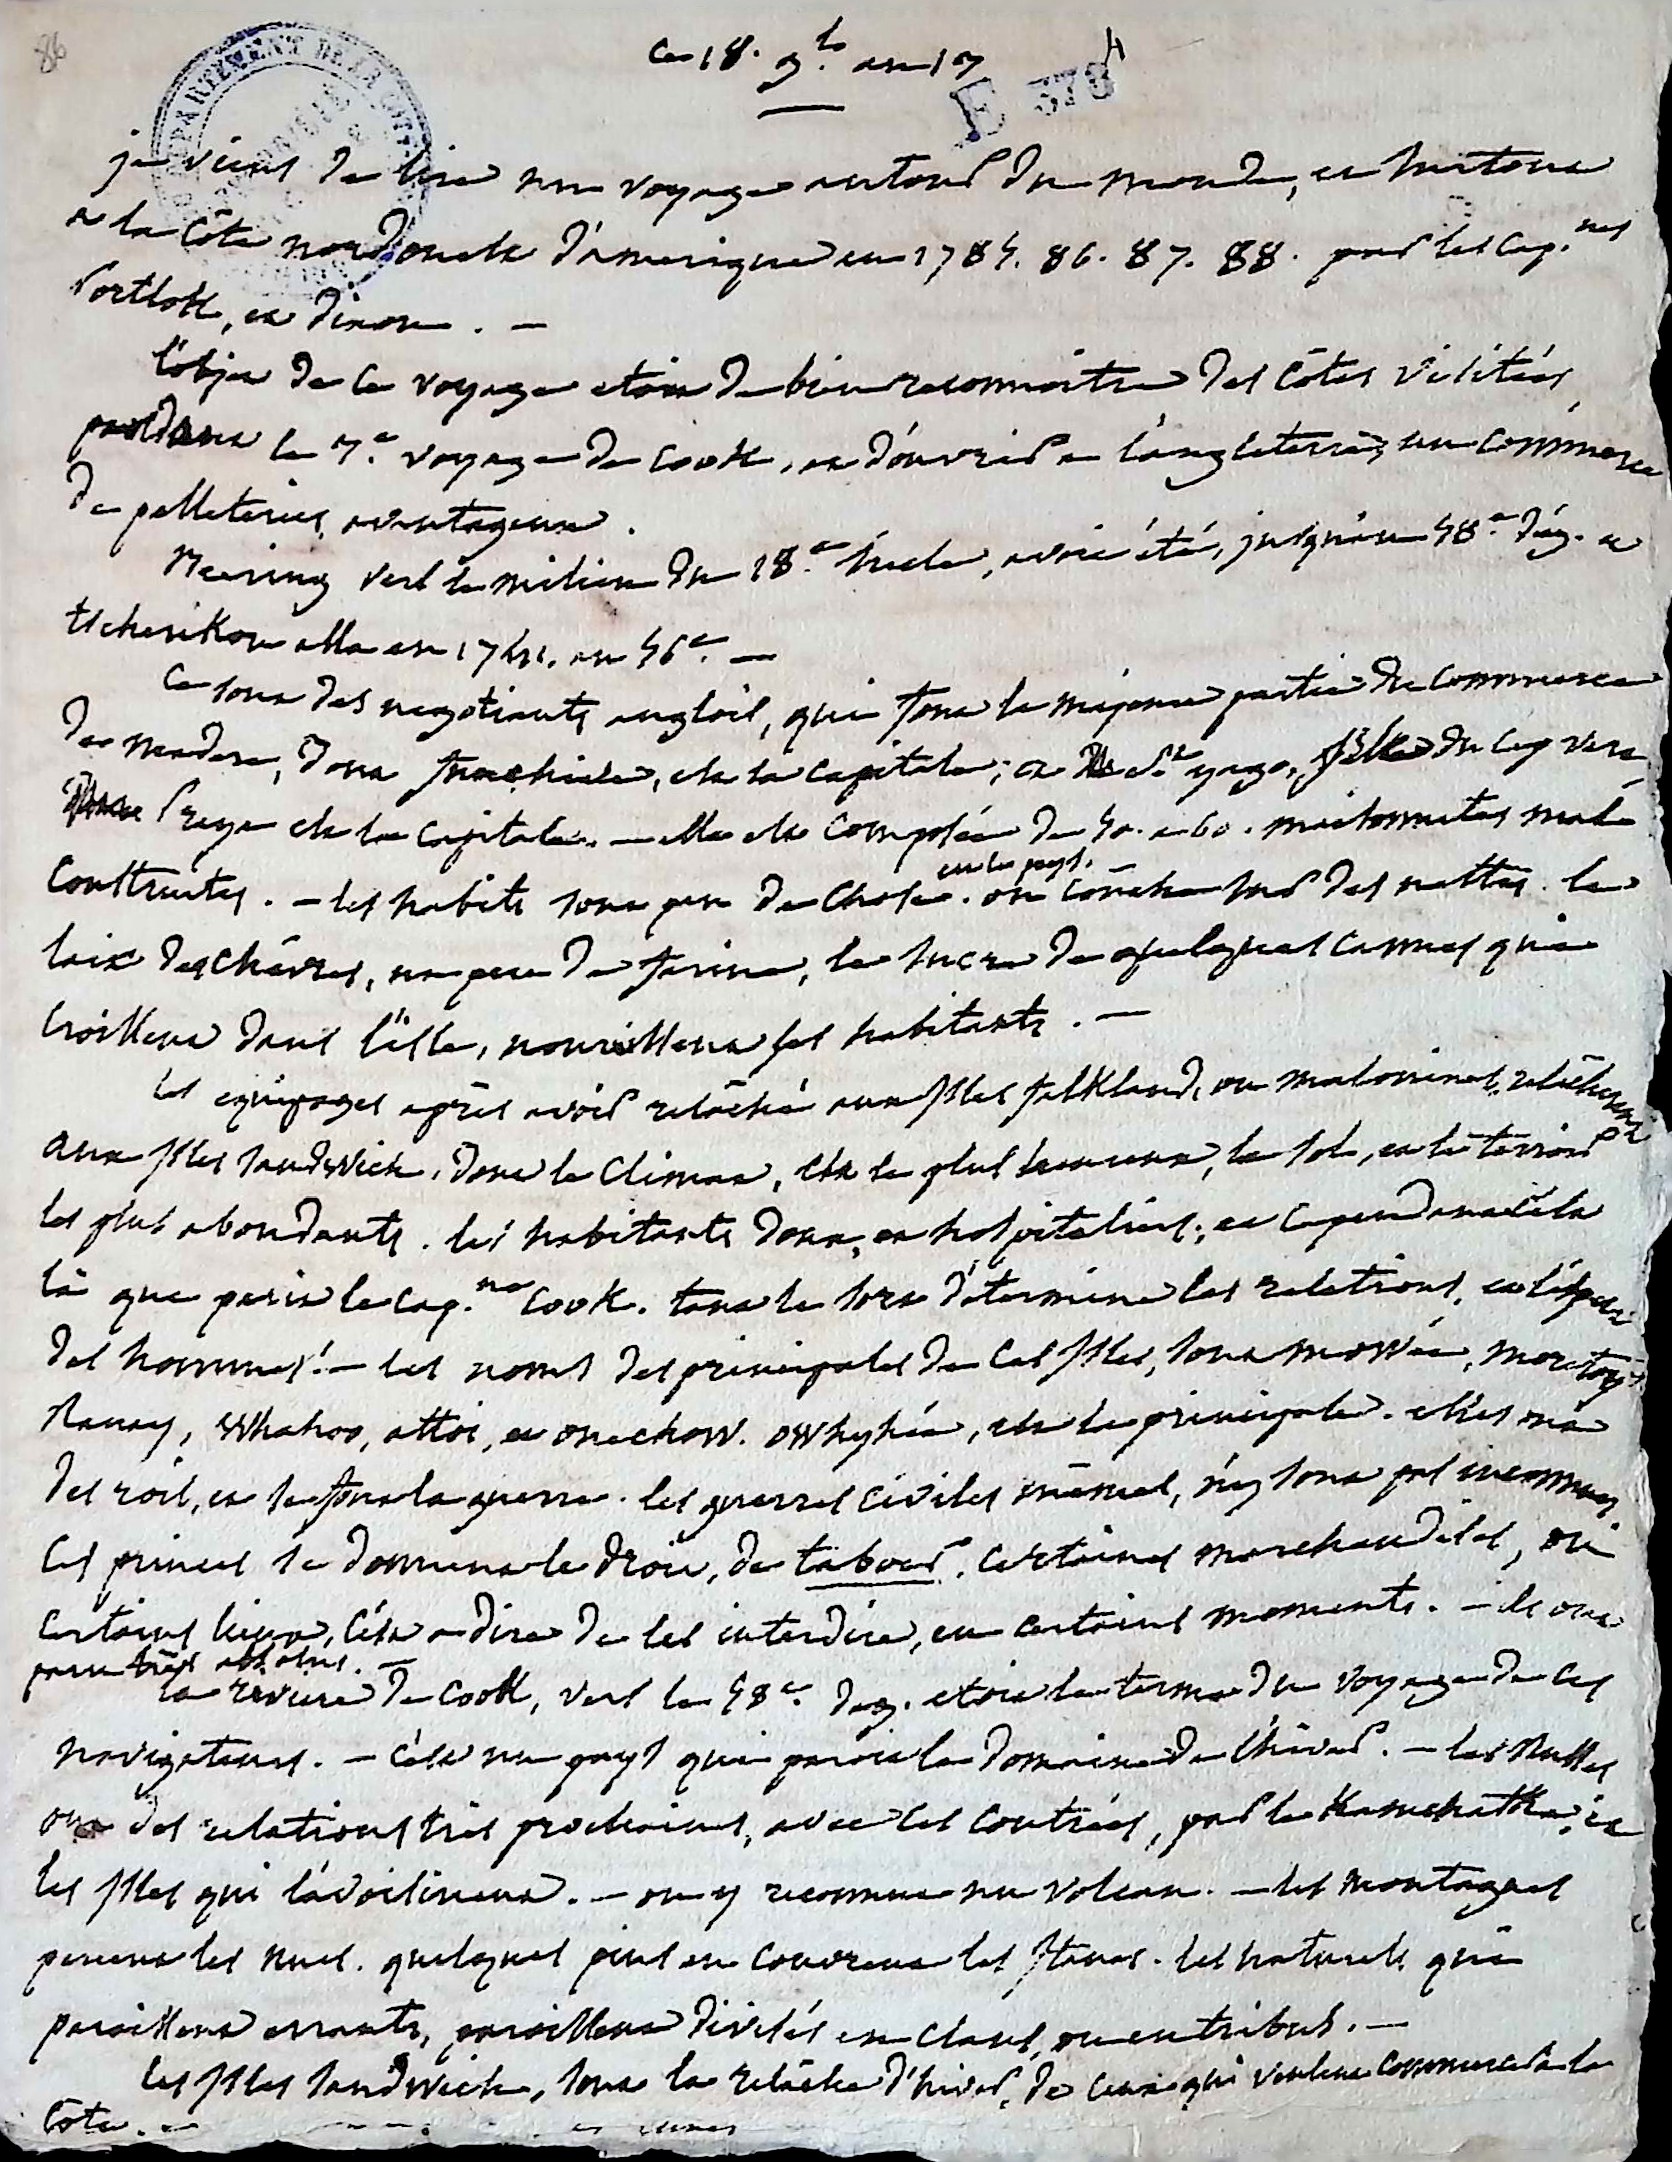 86
ce 18. 9.b an 17
E 378
DEPARTEMENT DE LA COTE
je viens de lire un voyage autour du monde, et surtout
a la côte nord ouest d'amerique en 1785. 86. 87. 88. par les cap.nes
Portlok, et dixon. —
l'objet de ce voyage etoit de bien reconnoitre des côtes visitées
pendant le 3.e voyage de Cook, et d'ouvrir a l'angleterre, un commerce
de pelleteries, avantageux.
Beering vers le milieu du 18.e siecle, avoit été, jusqu'au 58.e dég. et
tscherikow alla en 1741. au 56.e —
ce sont des negotiants anglois, qui font la majeure partie du commerce
de madere, dont funchiale, est la capitale; et de St. yago, isle du cap vert,
Praya est la capitale. — elle est composée de 50. a 60. maisonnettes mal
construites. — les habits sont peu de chose en ce pays. — on couche sur des nattes. le
lait des chévres, un peu de farine, le sucre de quelques cannes qui
croissent dans l'isle, nourissent ses habitants. —
les equipages après avoir relaché aux isles falkland, ou malouines, relacherent
aux isles sandwich, dont le climat, est le plus heureux, le sol, et le terroir
les plus abondants. les habitants doux, et hospitaliers; et cependant c'est
là que perit le cap.ne Cook. tant le sort détermine les relations, et l'esprit
des hommes! — les noms des principales de ces isles, sont mowée, morotoy,
Ranay, Whahoo, attoi, et oneehow. owhyhée, est la principale. elles ont
des rois, et se font la guerre. les guerres civiles mêmes, n'y sont pas inconnues.
ces princes se donnent le droit, de tabouer, certaines marchandises, ou
certains lieux, c'est a dire de les interdire, en certains moments. — ils ont
paru très absolus. —
la riviere de Cook, vers le 58.e deg. etoit le terme du voyage de ces
navigateurs. — c'est un pays qui paroit le domaine de l'hiver. — les Russes
ont des relations très prochaines, avec ces contrées, par le Kamchatka, et
les isles qui l'avoisinent. — on y reconnut un volcan. — les montagnes
percent les nues. quelques pins en couvrent les flancs. les naturels qui
paroissent errants, paroissent divisés en clans, ou en tribus. —
les isles sandwich, sont la relâche d'hiver, de ceux qui veulent commercer a la
côte. —